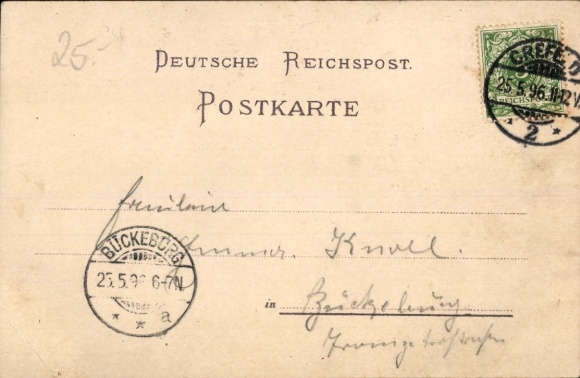 25.-
DEUTSCHE REICHSPOST.
POSTKARTE
CREFELD
25.5.96.11-12V.
REICHSPOST
2
Fräulein
Knoll.
BÜCKEBURG
25.5.96 6-7N
* * a
in Bückeburg